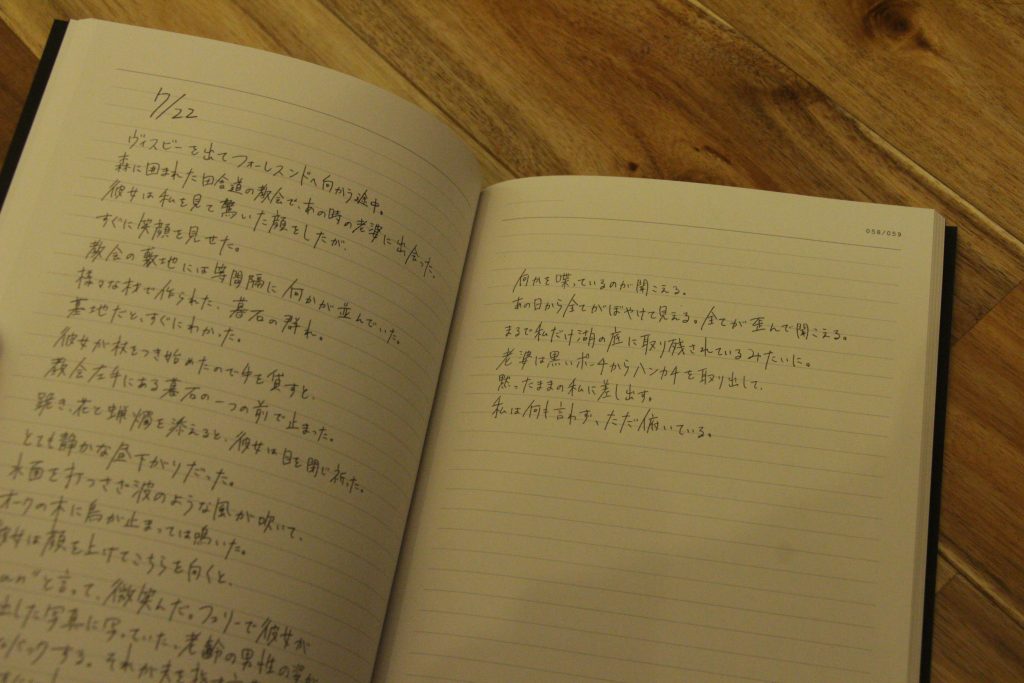 7/22
ヴィスビーを出てフォーレスンドへ向かう途中。
森に囲まれた田舎道の教会で、あの時の老婆に出会った。
彼女は私を見て驚いた顔をしたが、
すぐに笑顔を見せた。
教会の敷地には等間隔に何かが並んでいた。
様々な材で作られた、墓石の群れ。
墓地だと、すぐにわかった。
彼女が杖をつき始めたので手を貸すと、
教会左手にある墓石の一つの前で止まった。
跪き、花と蝋燭を添えると、彼女は目を閉じ祈った。
とても静かな昼下がりだった。
水面を打つさざ波のような風が吹いて、
オークの木に鳥が止まっては鳴いた。
彼女は顔を上げてこちらを向くと、
と言って、微笑んだ。フェリーで彼女が
出した写真に写っていた、老齢の男性の姿が
バックする。それが夫を
058/059
何かを喋っているのが聞こえる。
あの日から全てがぼやけて見える。全てが歪んで聞こえる。
まるで私だけ湖の底に取り残されているみたいに。
老婆は黒いポーチからハンカチを取り出して、
黙ったままの私に差し出す。
私は何も言わず、ただ俯いている。